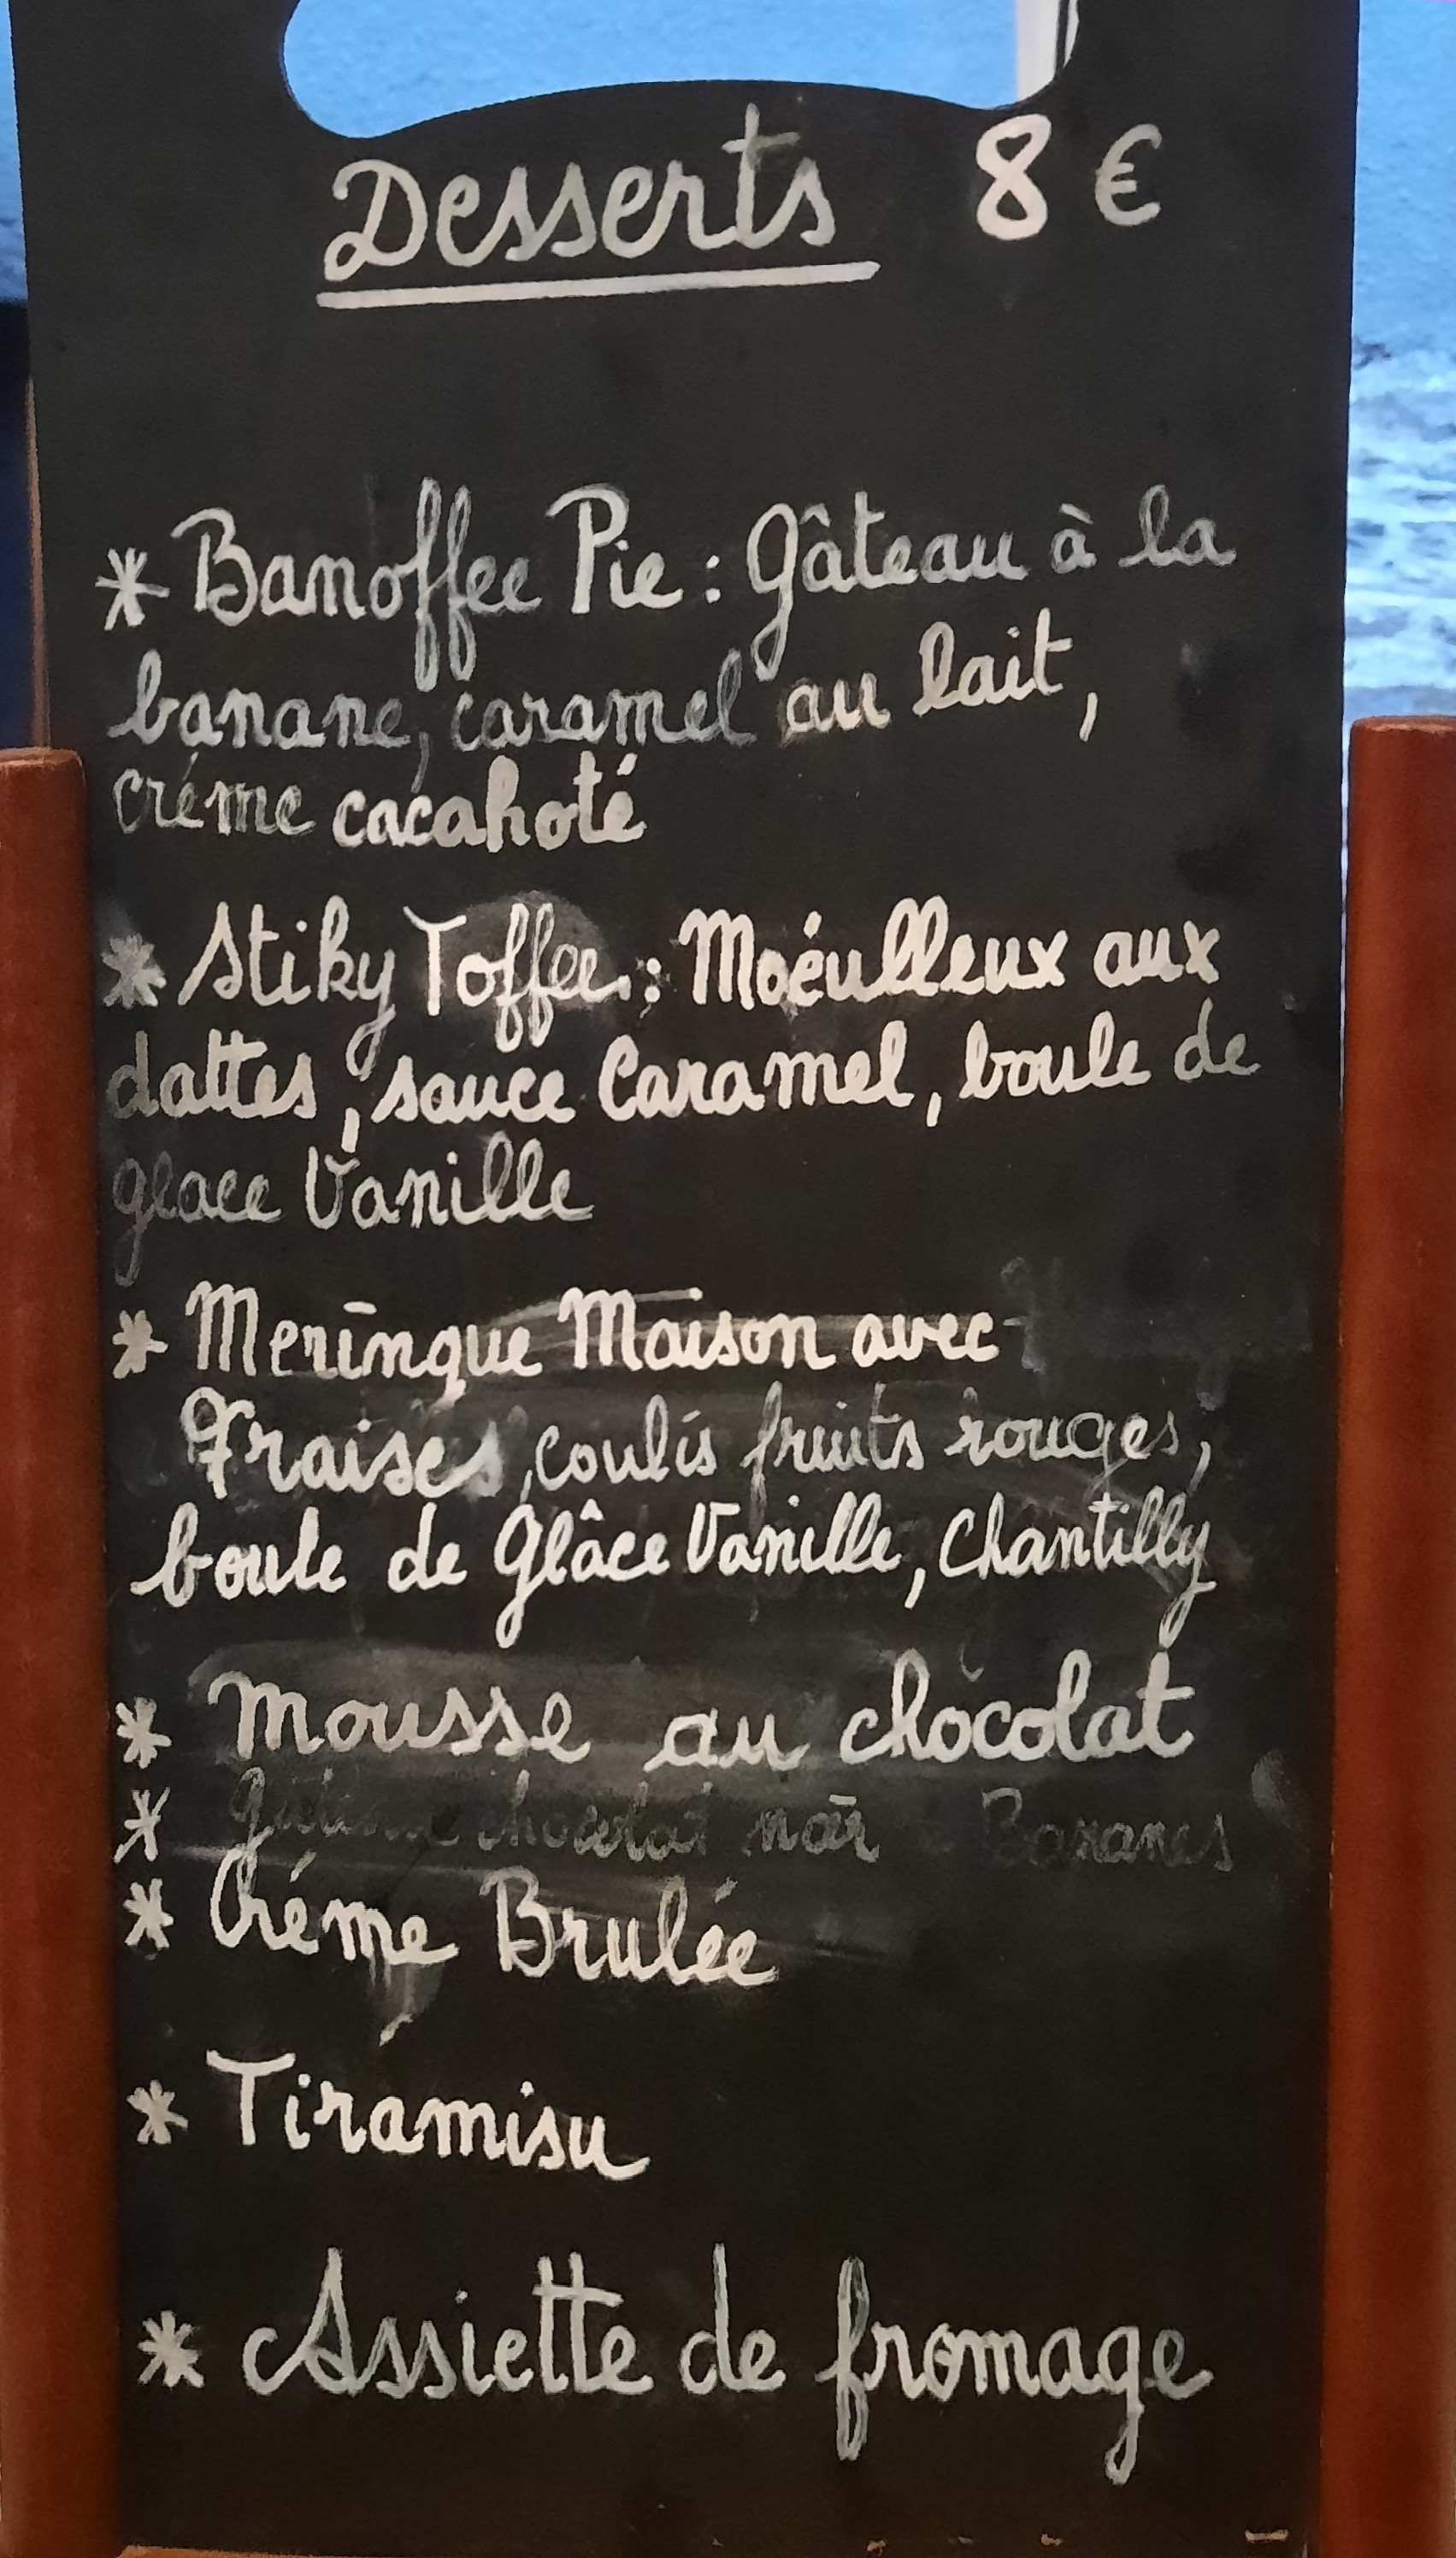 Desserts 8 €
* Banoffee Pie : Gâteau à la
banane, caramel au lait,
créme cacahoté
* Stiky Toffee : Moéulleux aux
dattes, sauce Caramel, boule de
glace Vanille
* Meringue Maison avec
Fraises, coulis fruits rouges,
boule de Glâce Vanille, Chantilly
* Mousse au chocolat
* chocolat noir Bananes
* Créme Brulée
* Tiramisu
* Assiette de fromage